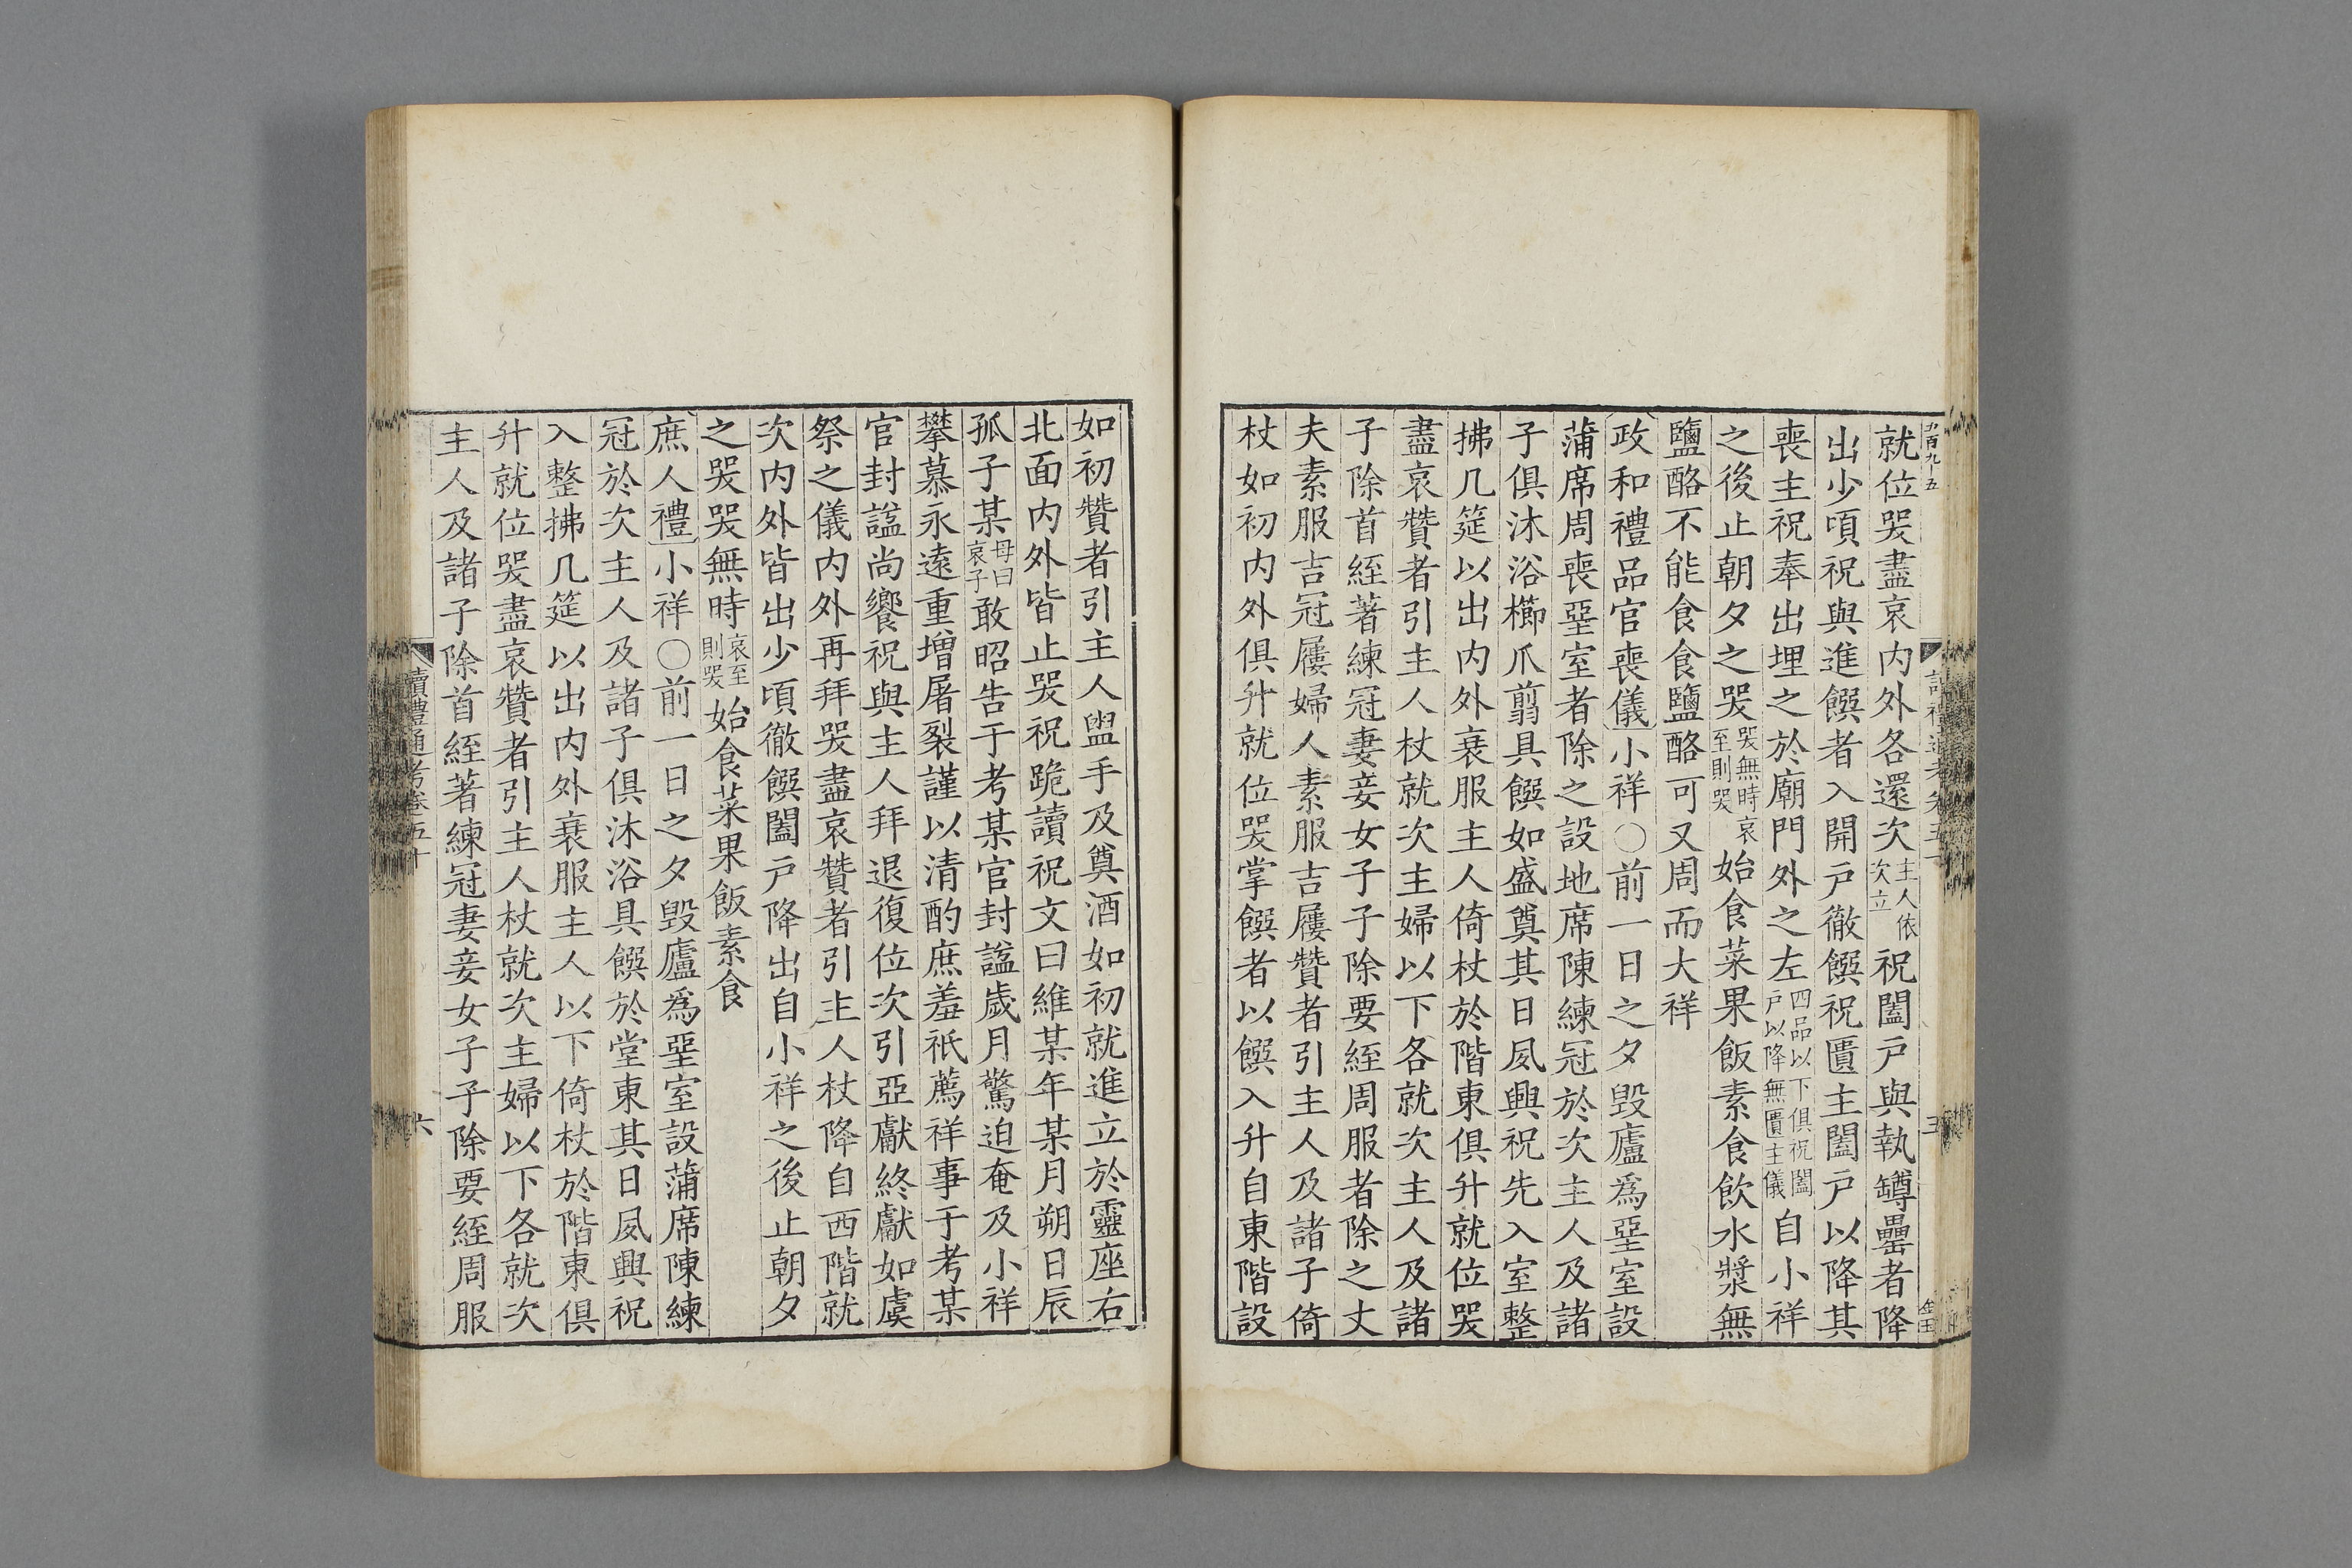 就位哭盡哀内外各還次主人依次立祝闔戸與執罇罍者降
出少頃祝與進饌者入開戸徹饌祝匱主闔戸以降其
喪主祝奉出埋之於廟門外之左四品以下俱祝闔戸以降無匱主儀自小祥
之後止朝夕之哭哭無時哀至則哭始食菜果飯素食飲水漿無
鹽酪不能食食鹽酪可又周而大祥
政和禮品官喪儀小祥〇前一日之夕毀廬爲堊室設
蒲席周喪堊室者除之設地席陳練冠於次主人及諸
子俱沐浴櫛爪翦具饌如盛奠其日夙興祝先入室整
拂几筵以出内外衰服主人倚杖於階東俱升就位哭
盡哀贊者引主人杖就次主婦以下各就次主人及諸
子除首絰著練冠妻妾女子子除要絰周服者除之丈
夫素服吉冠屨婦人素服吉屨贊者引主人及諸子倚
杖如初内外俱升就位哭掌饌者以饌入升自東階設
如初贊者引主人盥手及奠酒如初就進立於靈座右
北面内外皆止哭祝跪讀祝文曰維某年某月朔日辰
孤子某母曰哀子敢昭告于考某官封謚歲月驚迫奄及小祥
攀慕永遠重增屠裂謹以清酌庶羞祇薦祥事于考某
官封謚尚饗祝與主人拜退復位次引亞獻終獻如虞
祭之儀内外再拜哭盡哀贊者引主人杖降自西階就
次内外皆出少頃徹饌闔戸降出自小祥之後止朝夕
之哭哭無時哀至則哭始食菜果飯素食
庶人禮小祥〇前一日之夕毀廬爲堊室設蒲席陳練
冠於次主人及諸子俱沐浴具饌於堂東其日夙興祝
入整拂几筵以出内外衰服主人以下倚杖於階東俱
升就位哭盡哀贊者引主人杖就次主婦以下各就次
主人及諸子除首絰著練冠妻妾女子子除要絰周服
讀禮通考卷五十
六